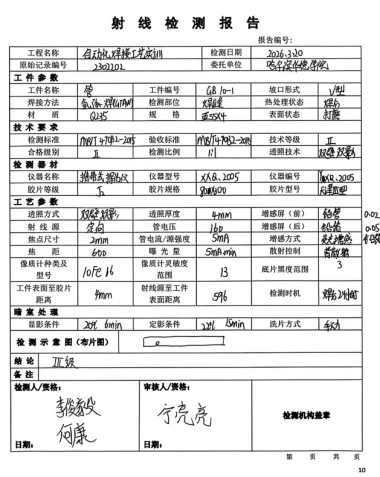 射 线 检 测 报 告
报告编号:
工程名称 自动化焊接工艺实训 检测日期 2026.3.20
原始记录编号 2302102 委托单位
工 件 参 数
工件名称 管 工件编号 GB10-1 坡口形式 V型
焊接方法 检测部位 焊缝 热处理状态 焊后
材 质 Q235 规 格 表面状态 打磨
技 术 要 求
检测标准 NB/T 47013-2015 验收标准 NB/T 47013-2015 技术等级 II
合格级别 II 检测比例 1:1 透照技术 双壁双影
检 测 器 材
仪器名称 仪器型号 XXQ.2005 仪器编号
胶片等级 胶片规格 胶片型号
工 艺 参 数
透照方式 双壁双影 透照厚度 4mm 增感屏(前) 铅箔 0.02
射 线 源 定向 管电压 160 增感屏(后) 铅箔 0.05
焦点尺寸 2mm 管电流/源强度 5mA 增感方式
焦 距 600 曝 光 量 5mA min 散射控制
像质计种类及型号 10Fe 16 像质计灵敏度范围 13 底片黑度范围 3
工件表面至胶片距离 4mm 射线源至工件表面距离 596 检测时机 焊后24小时
暗 室 处 理
显影条件 20℃ 6min 定影条件 15min 洗片方式 手动
检 测 示 意 图(布片图)
结 论 IV级
备 注
检测人/资格: 审核人/资格: 检测机构盖章
李俊毅 宁亮亮
何康
日期: 日期:
第 页 共 页
10